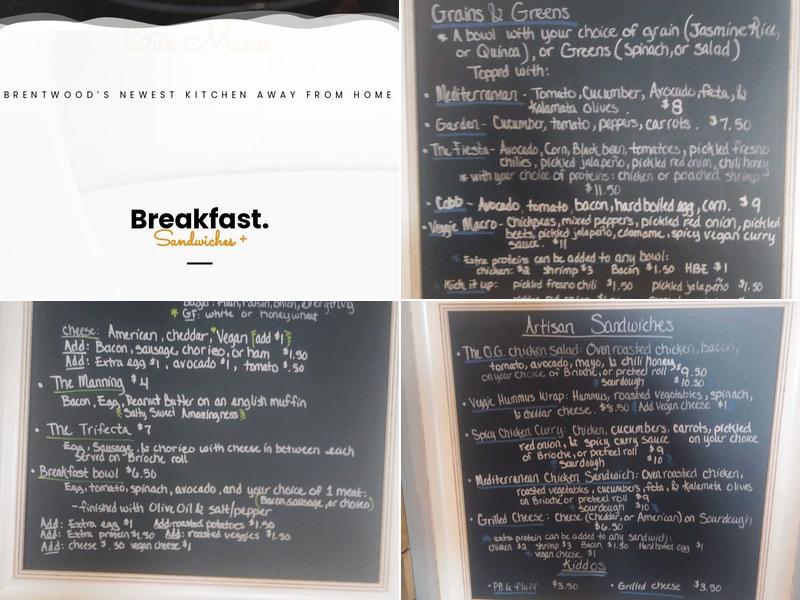 Our Menu
BRENTWOOD'S NEWEST KITCHEN AWAY FROM HOME
Breakfast.
Sandwiches +
Grains & Greens
* A bowl with your choice of grain (Jasmine Rice,
or Quinoa), or Greens (Spinach, or Salad)
Topped with:
• Mediterranean - Tomato, Cucumber, Avocado, feta, &
Kalamata olives. $8
• Garden - Cucumber, tomato, peppers, carrots. $7.50
• The Fiesta - Avocado, Corn, Black bean, tomatoes, pickled fresno
chilies, pickled jalapeño, pickled red onion, chili honey
* with your choice of proteins: chicken or poached shrimp
$11.50
• Cobb - Avocado, tomato, bacon, hard boiled egg, corn. $9
• Veggie Macro - Chickpeas, mixed peppers, pickled red onion, pickled
beets, pickled jalapeño, edamame, spicy vegan curry
sauce. $11
Extra proteins can be added to any bowl:
chicken: $2 shrimp $3 Bacon $1.50 HBE $1
Kick it up: pickled fresno chili $1.50 pickled jalapeño $1.50
Bagel: Plain, raisin, onion, everything
* GF: white or honeywheat
Cheese: American, cheddar, Vegan {add $1}
Add: Bacon, sausage, chorizo, or ham $1.50
Add: Extra egg $1, avocado $1, tomato $.50
• The Manning $4
Bacon, Egg, Peanut Butter on an english muffin
{Salty Sweet Amazingness}
• The Trifecta $7
Egg, Sausage, & chorizo with cheese in between each
served on Brioche roll
• Breakfast bowl $6.50
Egg, tomato, spinach, avocado, and your choice of 1 meat:
(Bacon, sausage, or chorizo)
- finished with Olive Oil & salt/pepper
Add: Extra egg $1 Add: roasted potatoes $1.50
Add: Extra protein $1.50 Add: roasted veggies $1.50
Add: cheese $.50 vegan cheese $1
Artisan Sandwiches
• The O.G. chicken salad: Oven roasted chicken, bacon,
tomato, avocado, mayo, & chili honey
on your choice of Brioche, or pretzel roll $9.50
sourdough $10.50
• Veggie Hummus Wrap: Hummus, roasted vegetables, spinach,
& cheddar cheese. $8.50 Add Vegan cheese $1
• Spicy Chicken Curry: Chicken, cucumbers, carrots, pickled
red onion, & spicy curry sauce on your choice
of Brioche, or pretzel roll $9
sourdough $10
• Mediterranean Chicken Sandwich: Oven roasted chicken,
roasted vegetables, cucumbers, feta, & Kalamata olives
on Brioche or pretzel roll $9
sourdough $10
• Grilled Cheese: Cheese (Cheddar, or American) on Sourdough
$6.50
extra protein can be added to any sandwich:
chicken $2 shrimp $3 Bacon $1.50 Hard boiled egg $1
vegan cheese $1
Kiddos
• PB & fluff $3.50 • Grilled cheese $3.50